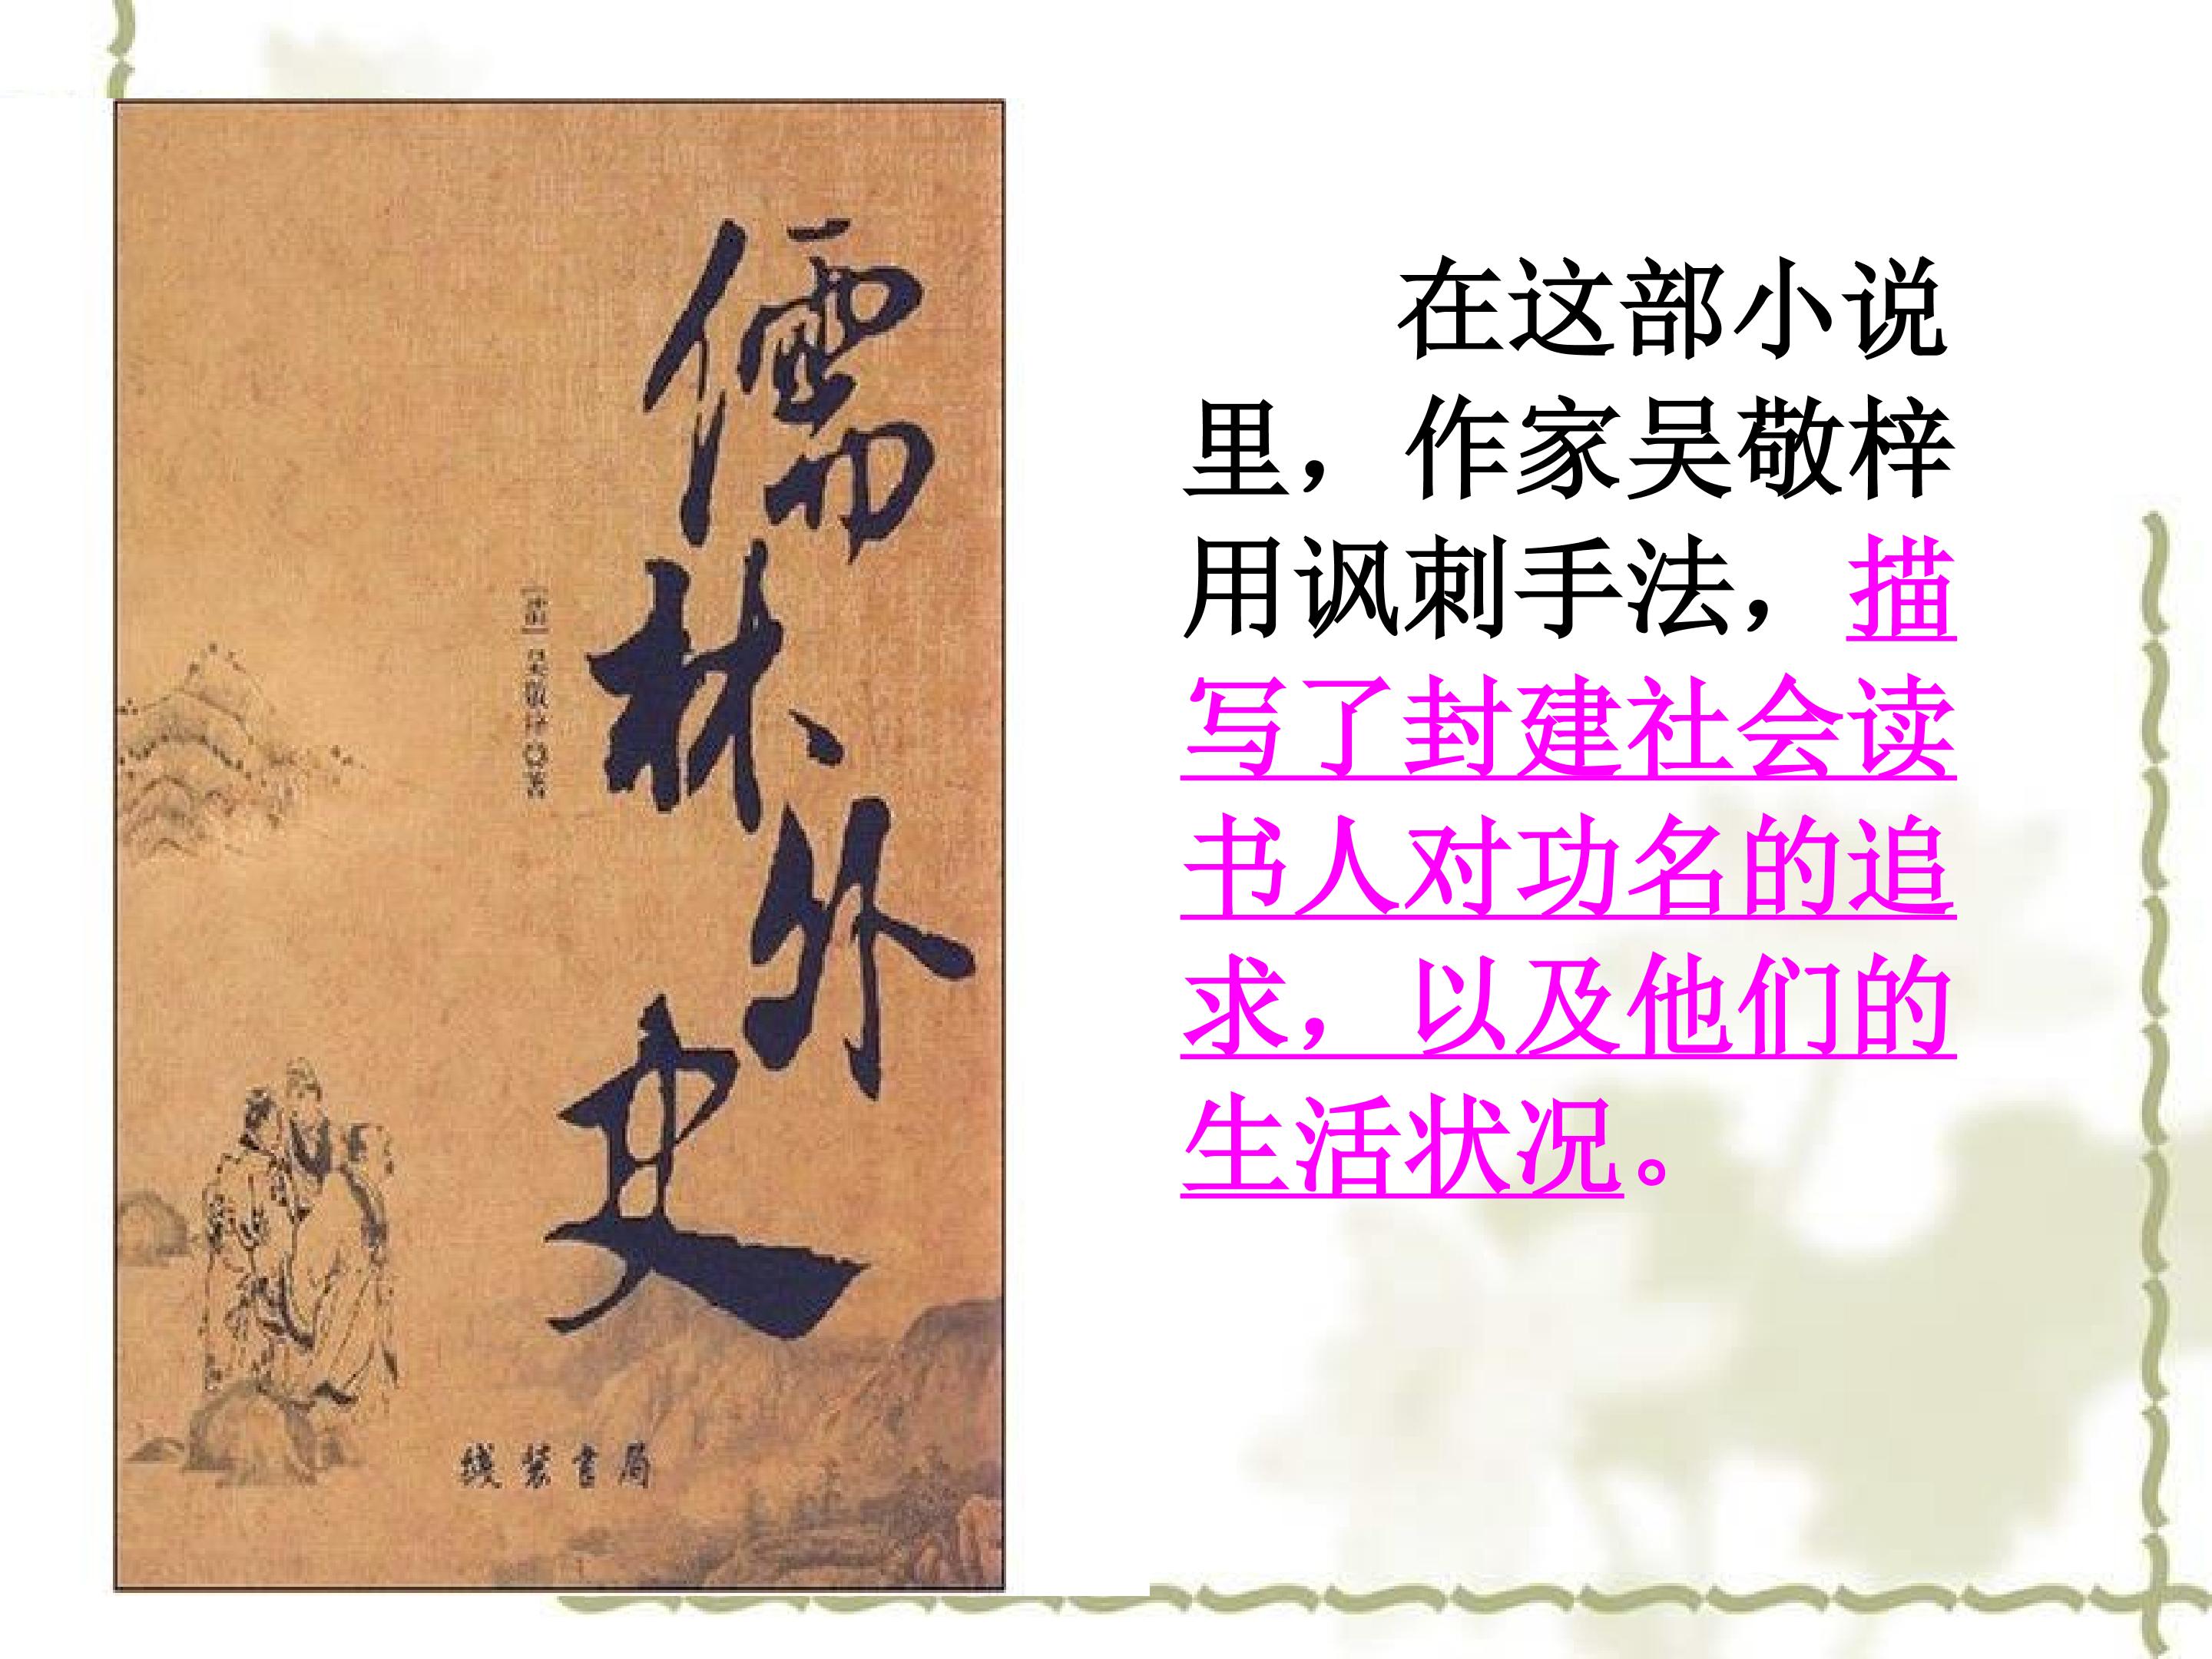 儒林外史
[清] 吴敬梓 著
线装书局
在这部小说
里，作家吴敬梓
用讽刺手法，描
写了封建社会读
书人对功名的追
求，以及他们的
生活状况。